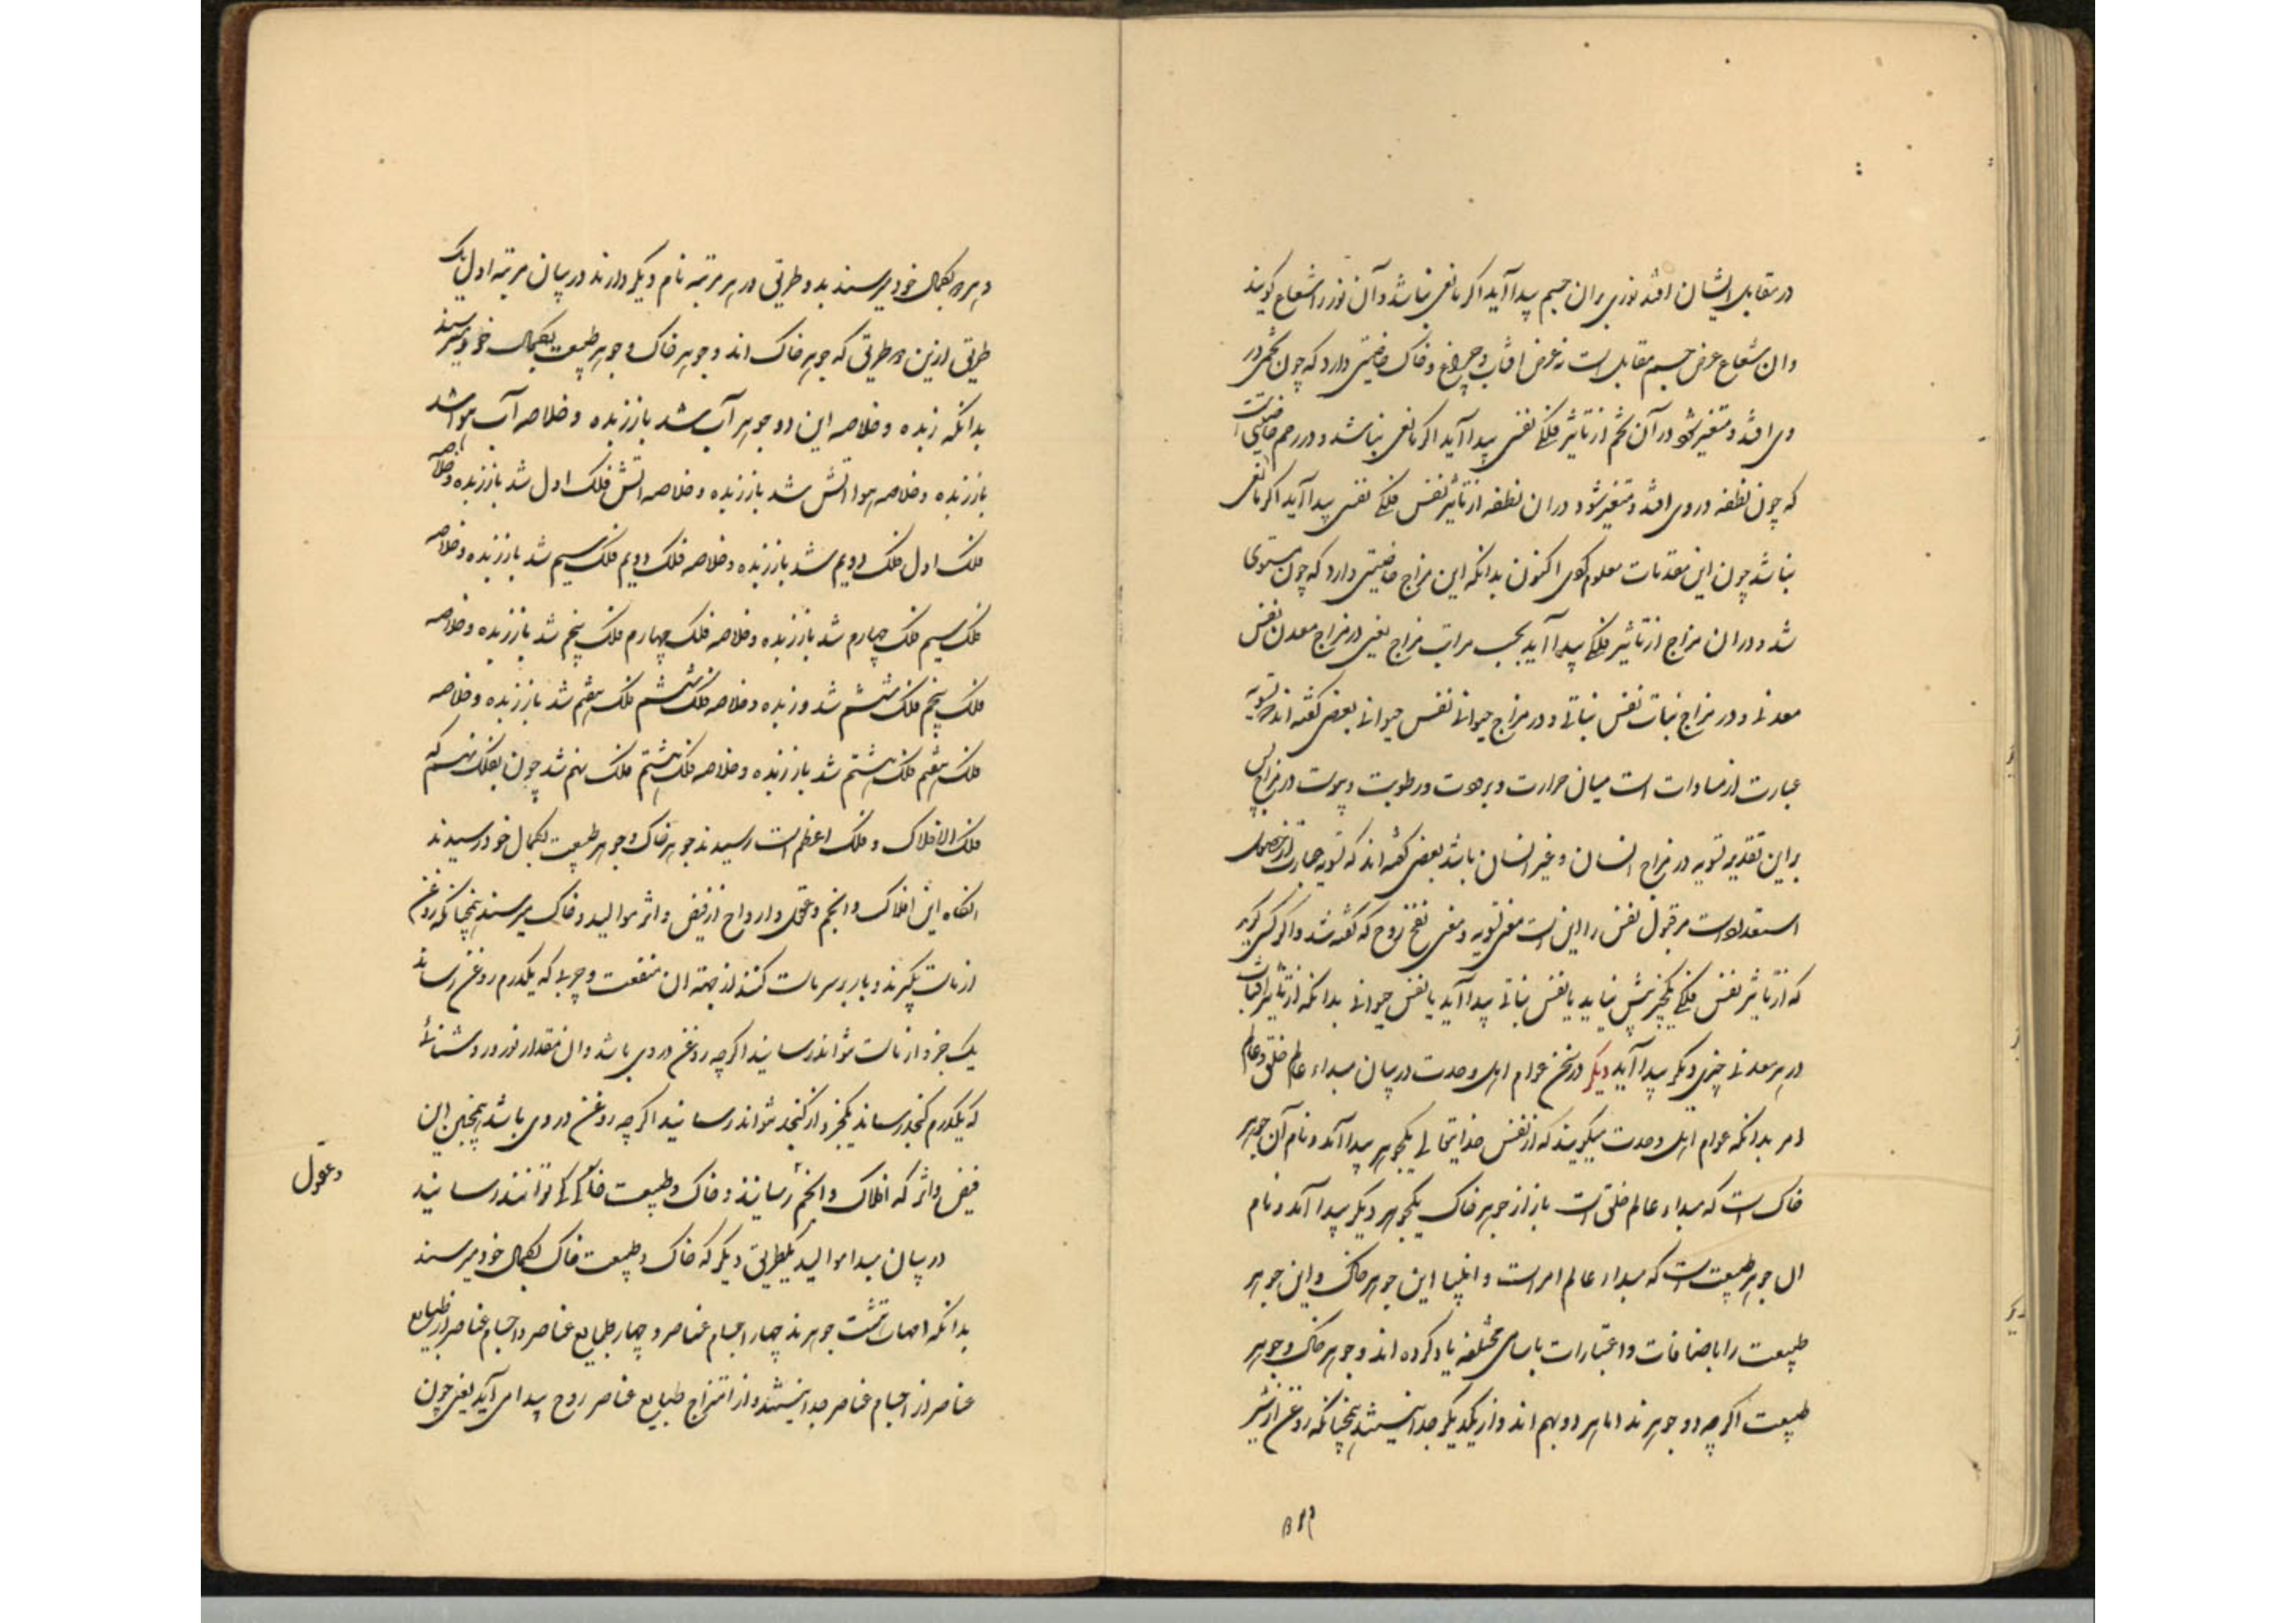 در مقابل ایشان افتد نوری بران جسم پیدا آید اگر مانعی نباشد و آن نور را شعاع گویند
وان شعاع عرض جسم مقابل است نه عرض افتاب و چراغ و خاک خاصیتی دارد که چون تخمی در
وی افتد و متغیر شود در آن تخم از تاثیر فلکی نفسی پیدا آید اگر مانعی نباشد و در رحم خاصیتی است
که چون نطفه در وی افتد و متغیر شود در ان نطفه از تاثیر نفس فلکی نفسی پیدا آید اگر مانعی
نباشد چون این مقدمات معلوم کردی اکنون بدانکه این مزاج خاصیتی دارد که چون مستوی
شد و در ان مزاج از تاثیر فلکی پیدا آید بحسب مراتب مزاج یعنی در مزاج معدن نفس
معدنی و در مزاج نبات نفس نباتی و در مزاج حیوانی نفس حیوانی بعضی گفته اند تسویه
عبارت از مساوات است میان حرارت و برودت و رطوبت و یبوست در مزاج پس
براین تقدیر تسویه در مزاج انسان و غیر انسان باشد بعضی گفته اند که تسویه عبارت از حصول
استعداد است مر قبول نفس را این است معنی تسویه و معنی نفخ روح که گفته شد و اگر کسی گوید
که از تاثیر نفس فلکی یکچیز بیش نیاید یا نفس نباتی پیدا آید یا نفس حیوانی بدانکه از تاثیر افتاب
در هر معدنی چیزی دیگر پیدا آید دیگر در سخن عوام اهل وحدت در بیان مبداء عالم خلق و عالم
امر بدانکه عوام اهل وحدت میگویند که از نفس خدایتعالی یکجوهر پیدا آمد و نام آن جوهر
خاک است که مبداء عالم خلق است باز از جوهر خاک یکجوهر دیگر پیدا آمد و نام
ال جوهر طبیعت است که مبداء عالم امر است و انبیا این جوهر خاک و این جوهر
طبیعت را باضافات و اعتبارات باسامی مختلفه یاد کرده اند و جوهر خاک و جوهر
طبیعت اگرچه دو جوهرند اما هر دو بهم اند و از یکدیگر جدا نیستند همچنانکه روغن از شیر
و هر دو بکمال خود میرسند بدو طریق در هر مرتبه نام دیگر دارند در بیان مرتبه اول یک
طریق ازین دو طریق که جوهر خاک اند و جوهر خاک و جوهر طبیعت بکمال خود میرسند
بدانکه زبده و خلاصه این دو جوهر آب شد باز زبده و خلاصه آب هوا شد
باز زبده و خلاصه هوا اتش شد باز زبده و خلاصه اتش فلک اول شد باز زبده و خلاصه
فلک اول فلک دویم شد باز زبده و خلاصه فلک دویم فلک سیم شد باز زبده و خلاصه
فلک سیم فلک چهارم شد باز زبده و خلاصه فلک چهارم فلک پنجم شد باز زبده و خلاصه
فلک پنجم فلک ششم شد و زبده و خلاصه فلک ششم فلک هفتم شد باز زبده و خلاصه
فلک هفتم فلک هشتم شد باز زبده و خلاصه فلک هشتم فلک نهم شد چون بفلک نهم که
فلک الافلاک و فلک اعظم است رسیدند جوهر خاک و جوهر طبیعت بکمال خود رسیدند
انکاه این افلاک و انجم و عقول و ارواح از فیض و اثر موالید و خاک میرسند همچنانکه روغن
از ماست بگیرند و باز بر سر ماست کنند از جهة ان منفعت و چربی که یکدرم روغن رساند
یک جزو از ماست نتواند رسانید اگرچه روغن در وی باشد و ان مقدار نور و روشنائی
که یکدرم کنجد رساند یکجزو از کنجد نتواند رسانید اگرچه روغن در وی باشد همچنین این
فیض و اثر که افلاک و انجم رسانند و خاک و طبیعت خاک کی توانند رسانید
و عقول
در بیان مبدا موالید یکطریق دیگر که خاک و طبیعت خاک بکمال خود میرسند
بدانکه امهات هشت جوهرند چهار اجسام عناصر و چهار طبایع عناصر و اجسام عناصر از طبایع
عناصر از اجسام عناصر جدا نیستند و از امتزاج طبایع عناصر روح پیدا می آید یعنی چون